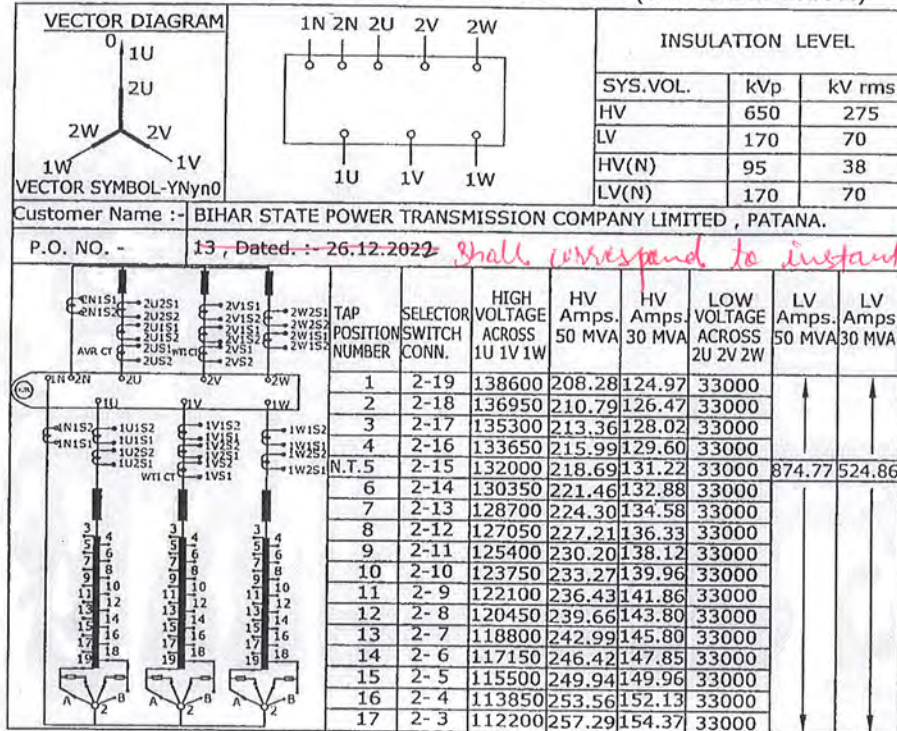 VECTOR DIAGRAM
0
1U
2U
2W
2V
1W
1V
VECTOR SYMBOL-YNyn0
1N 2N 2U 2V 2W
1U 1V 1W
INSULATION LEVEL
SYS.VOL. kVp kV rms
HV 650 275
LV 170 70
HV(N) 95 38
LV(N) 170 70
Customer Name :- BIHAR STATE POWER TRANSMISSION COMPANY LIMITED , PATANA.
P.O. NO. - 13 , Dated. :- 26.12.2022 Shall correspond to instant
2N1S1
2N1S2
2U2S1
2U2S2
2U1S1
2U1S2
AVR CT
2US1
2US2
WTI CT
2V1S1
2V1S2
2V2S1
2V2S2
2VS1
2VS2
2W2S1
2W2S2
2W1S1
2W1S2
1N 2N 2U 2V 2W
1U 1V 1W
1N1S2
1N1S1
1U1S2
1U1S1
1U2S2
1U2S1
WTI CT
1V1S2
1V1S1
1V2S2
1V2S1
1VS2
1VS1
1W1S2
1W1S1
1W2S2
1W2S1
3 4 3 4 3 4
5 6 5 6 5 6
7 8 7 8 7 8
9 10 9 10 9 10
11 12 11 12 11 12
13 14 13 14 13 14
15 16 15 16 15 16
17 18 17 18 17 18
19 19 19
A 2 B A 2 B A 2 B
TAP POSITION NUMBER
SELECTOR SWITCH CONN.
HIGH VOLTAGE ACROSS 1U 1V 1W
HV Amps. 50 MVA
HV Amps. 30 MVA
LOW VOLTAGE ACROSS 2U 2V 2W
LV Amps. 50 MVA
LV Amps. 30 MVA
1 2-19 138600 208.28 124.97 33000
2 2-18 136950 210.79 126.47 33000
3 2-17 135300 213.36 128.02 33000
4 2-16 133650 215.99 129.60 33000
N.T.5 2-15 132000 218.69 131.22 33000 874.77 524.86
6 2-14 130350 221.46 132.88 33000
7 2-13 128700 224.30 134.58 33000
8 2-12 127050 227.21 136.33 33000
9 2-11 125400 230.20 138.12 33000
10 2-10 123750 233.27 139.96 33000
11 2- 9 122100 236.43 141.86 33000
12 2- 8 120450 239.66 143.80 33000
13 2- 7 118800 242.99 145.80 33000
14 2- 6 117150 246.42 147.85 33000
15 2- 5 115500 249.94 149.96 33000
16 2- 4 113850 253.56 152.13 33000
17 2- 3 112200 257.29 154.37 33000